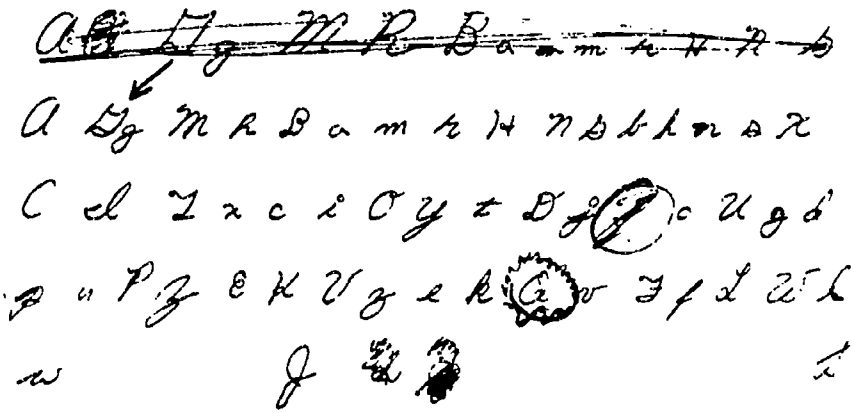 A G g M R B a m r H n s
A G g M R B a m r H n S b h n s X
C d I x c i O Y t D j c U g d
p u P z E K V z e k G v F f L W h
w J t